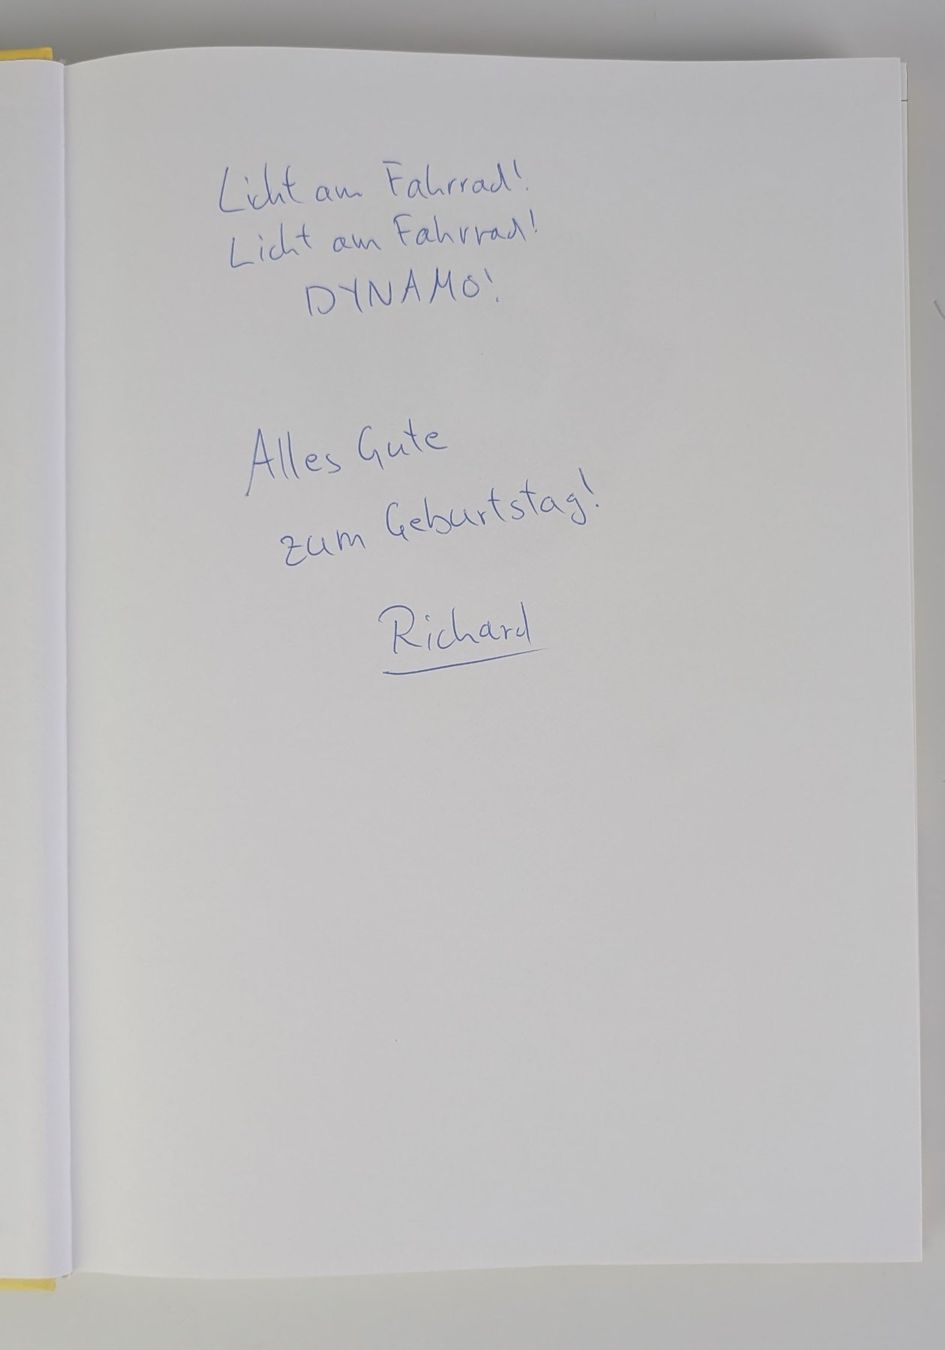 Licht am Fahrrad!
Licht am Fahrrad!
DYNAMO!
Alles Gute
zum Geburtstag!
Richard